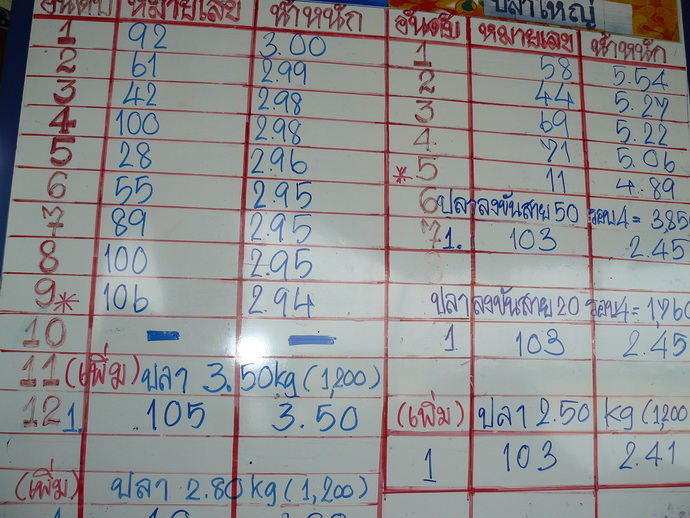 อันดับ หมายเลข น้ำหนัก
1 92 3.00
2 61 2.99
3 42 2.98
4 100 2.98
5 28 2.96
6 55 2.95
7 89 2.95
8 100 2.95
9* 106 2.94
10 - -
11 (เพิ่ม) ปลา 3.50kg (1,200)
12 1. 105 3.50
(เพิ่ม) ปลา 2.80kg (1,200)
ปลาใหญ่
อันดับ หมายเลข น้ำหนัก
1 58 5.54
2 44 5.27
3 69 5.22
4 71 5.06
*5 11 4.89
6 ปลาลงขันสาย 50 รอบ4 = 3,85
7 1. 103 2.45
ปลาลงขันสาย 20 รอบ4 = 1,760
1 103 2.45
(เพิ่ม) ปลา 2.50 kg (1,200
1 103 2.41